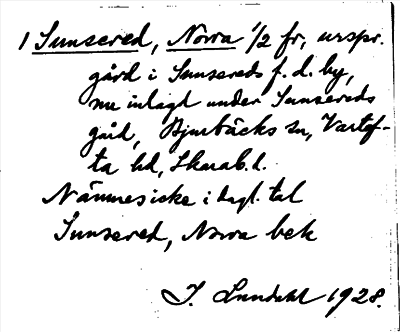 1 Sunsered, Norra 1/2 fr, urspr.
gård i Sunsereds f. d. by,
nu inlagt under Sunsereds
gård, Bjurbäcks sn, Vartof-
ta hd, Skarab. l.
Nämnes icke i dagl. tal
Sunsered, Norra bek
J. Lundahl 1928.